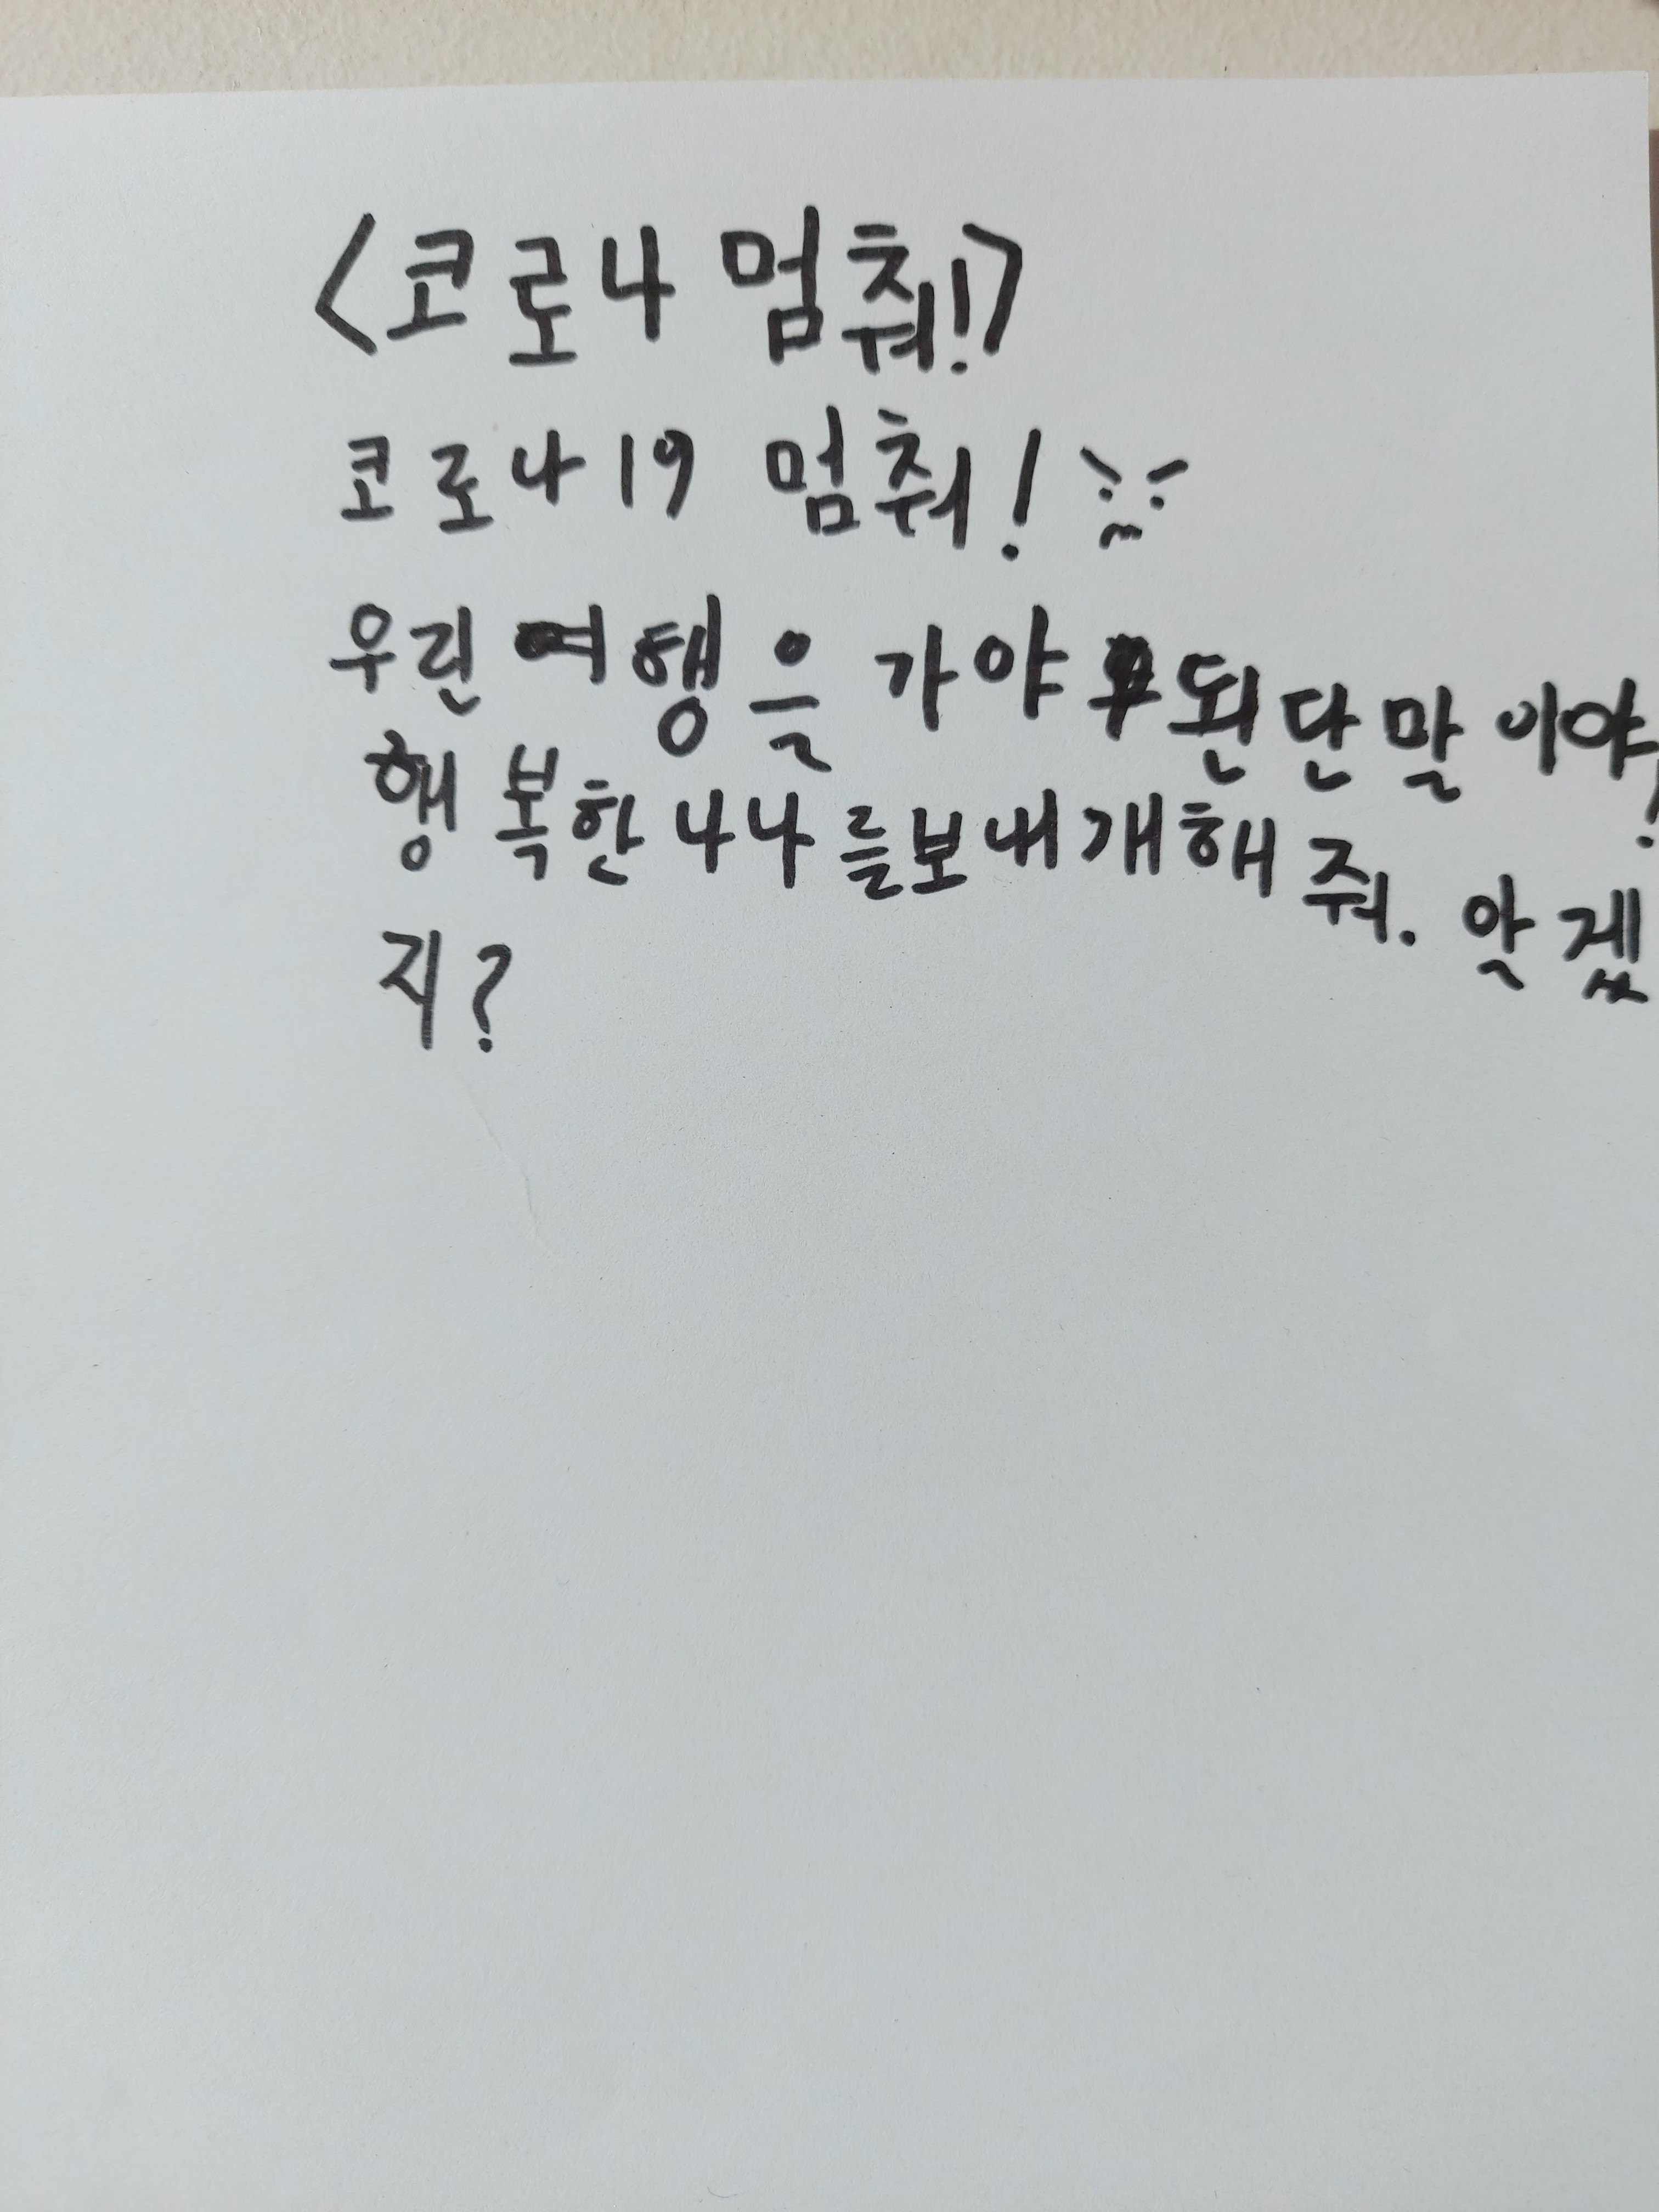 <코로나 멈춰!>
코로나19 멈춰!
우린 여행을 가야 됀단말이야!
행복한 나나를보내개해줘. 알겠
지?